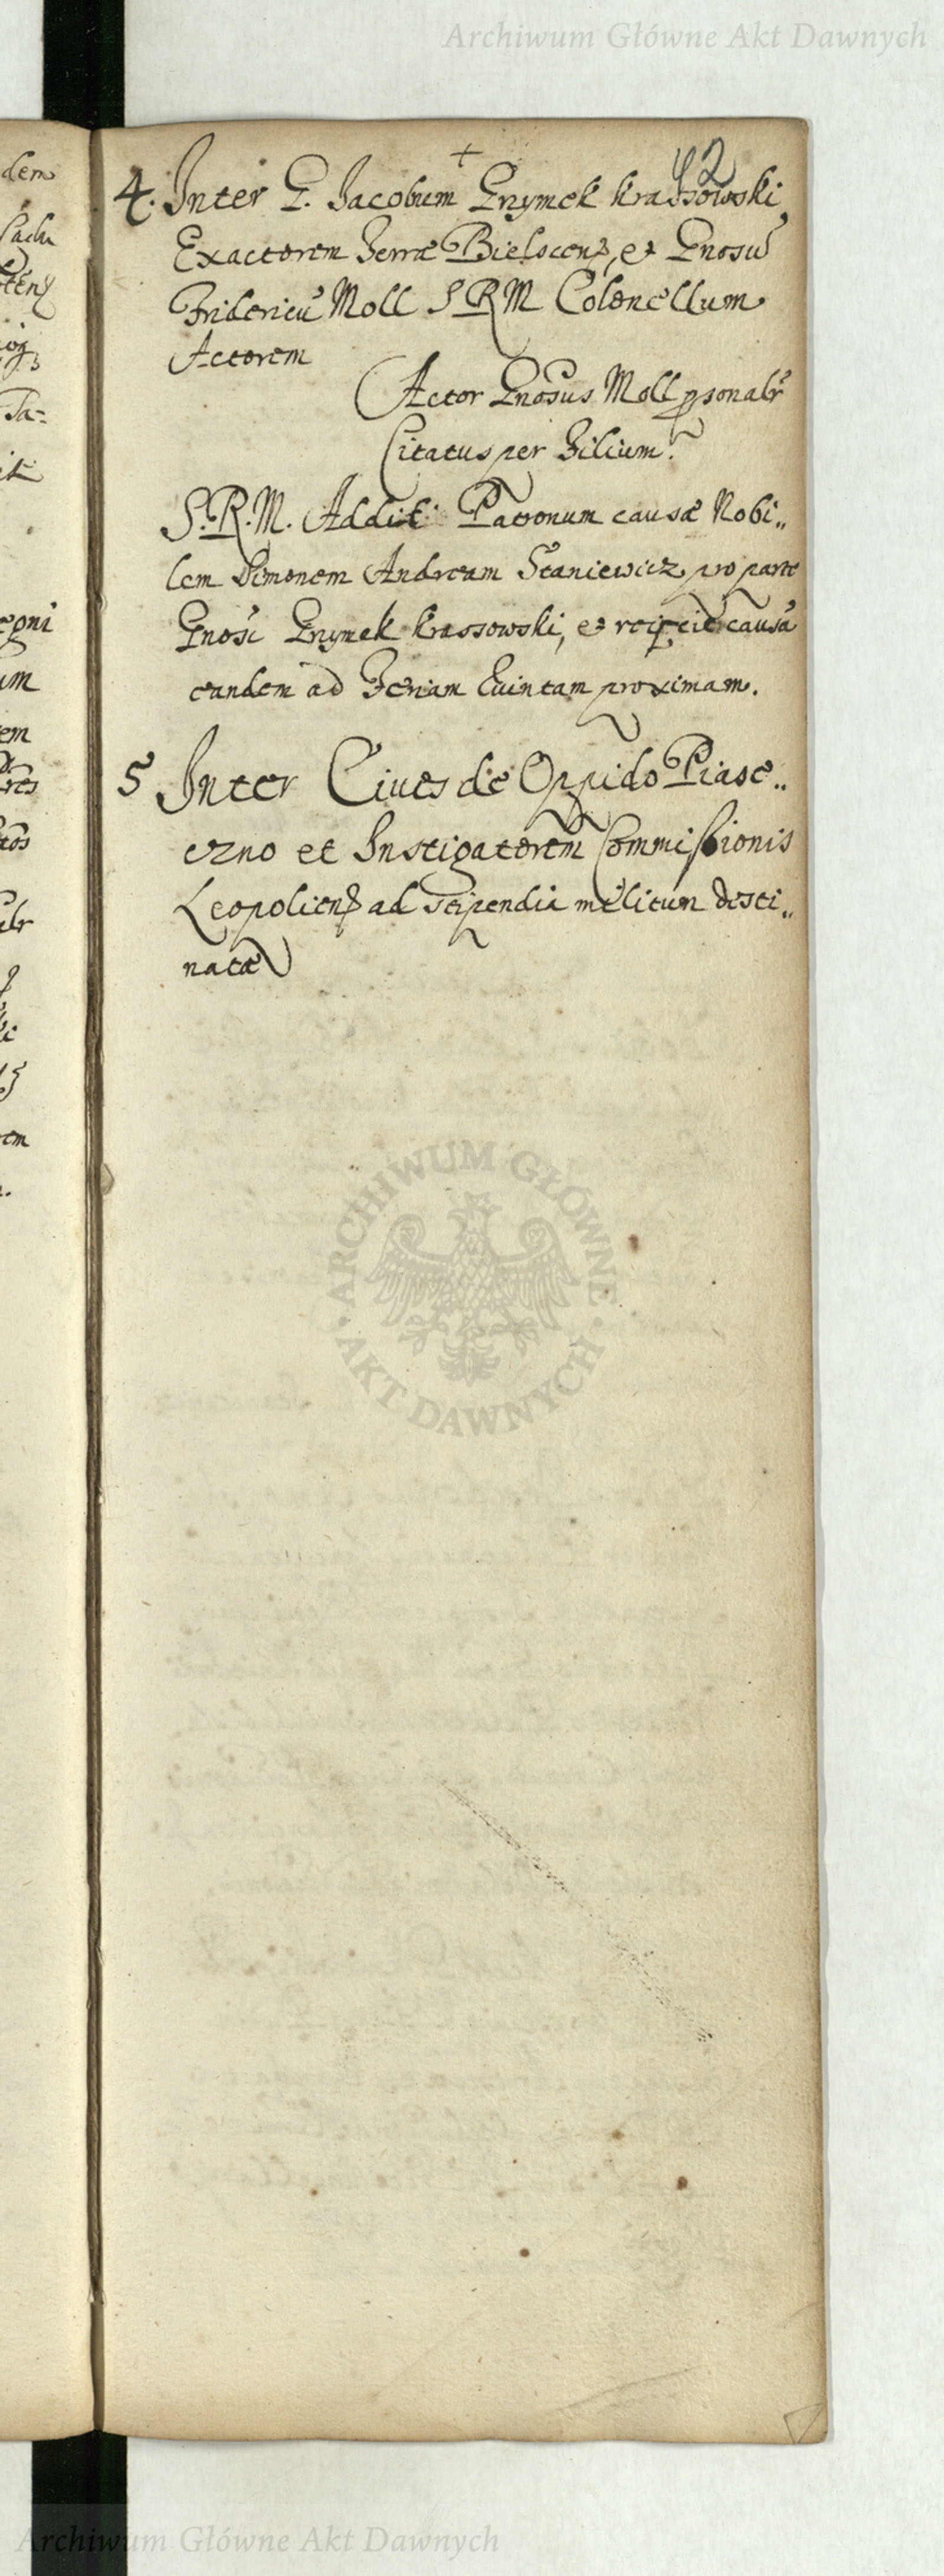 Archiwum Główne Akt Dawnych
42
4. Inter G. Jacobum Grzymek Krassowski
Exactorem Terræ Bielscens, et Gnosu
Fridericū Moll S R M Colonellum
Actorem
Actor Gnosus Moll psonalr
Citatus per Filium.
S. R. M. Addit Patronum causæ Nobi„
lem Simonem Andream Staniewicz pro parte
Gnosi Grzymek Krassowski, et reijcit causā
eandem ad Feriam Quintam proximam.
5 Inter Ciues de Oppido Piase„
czno et Instigatorem Commissionis
Leopoliens ad stipendia militum desti„
natæ
ARCHIWUM GŁÓWNE
AKT DAWNYCH
Archiwum Główne Akt Dawnych